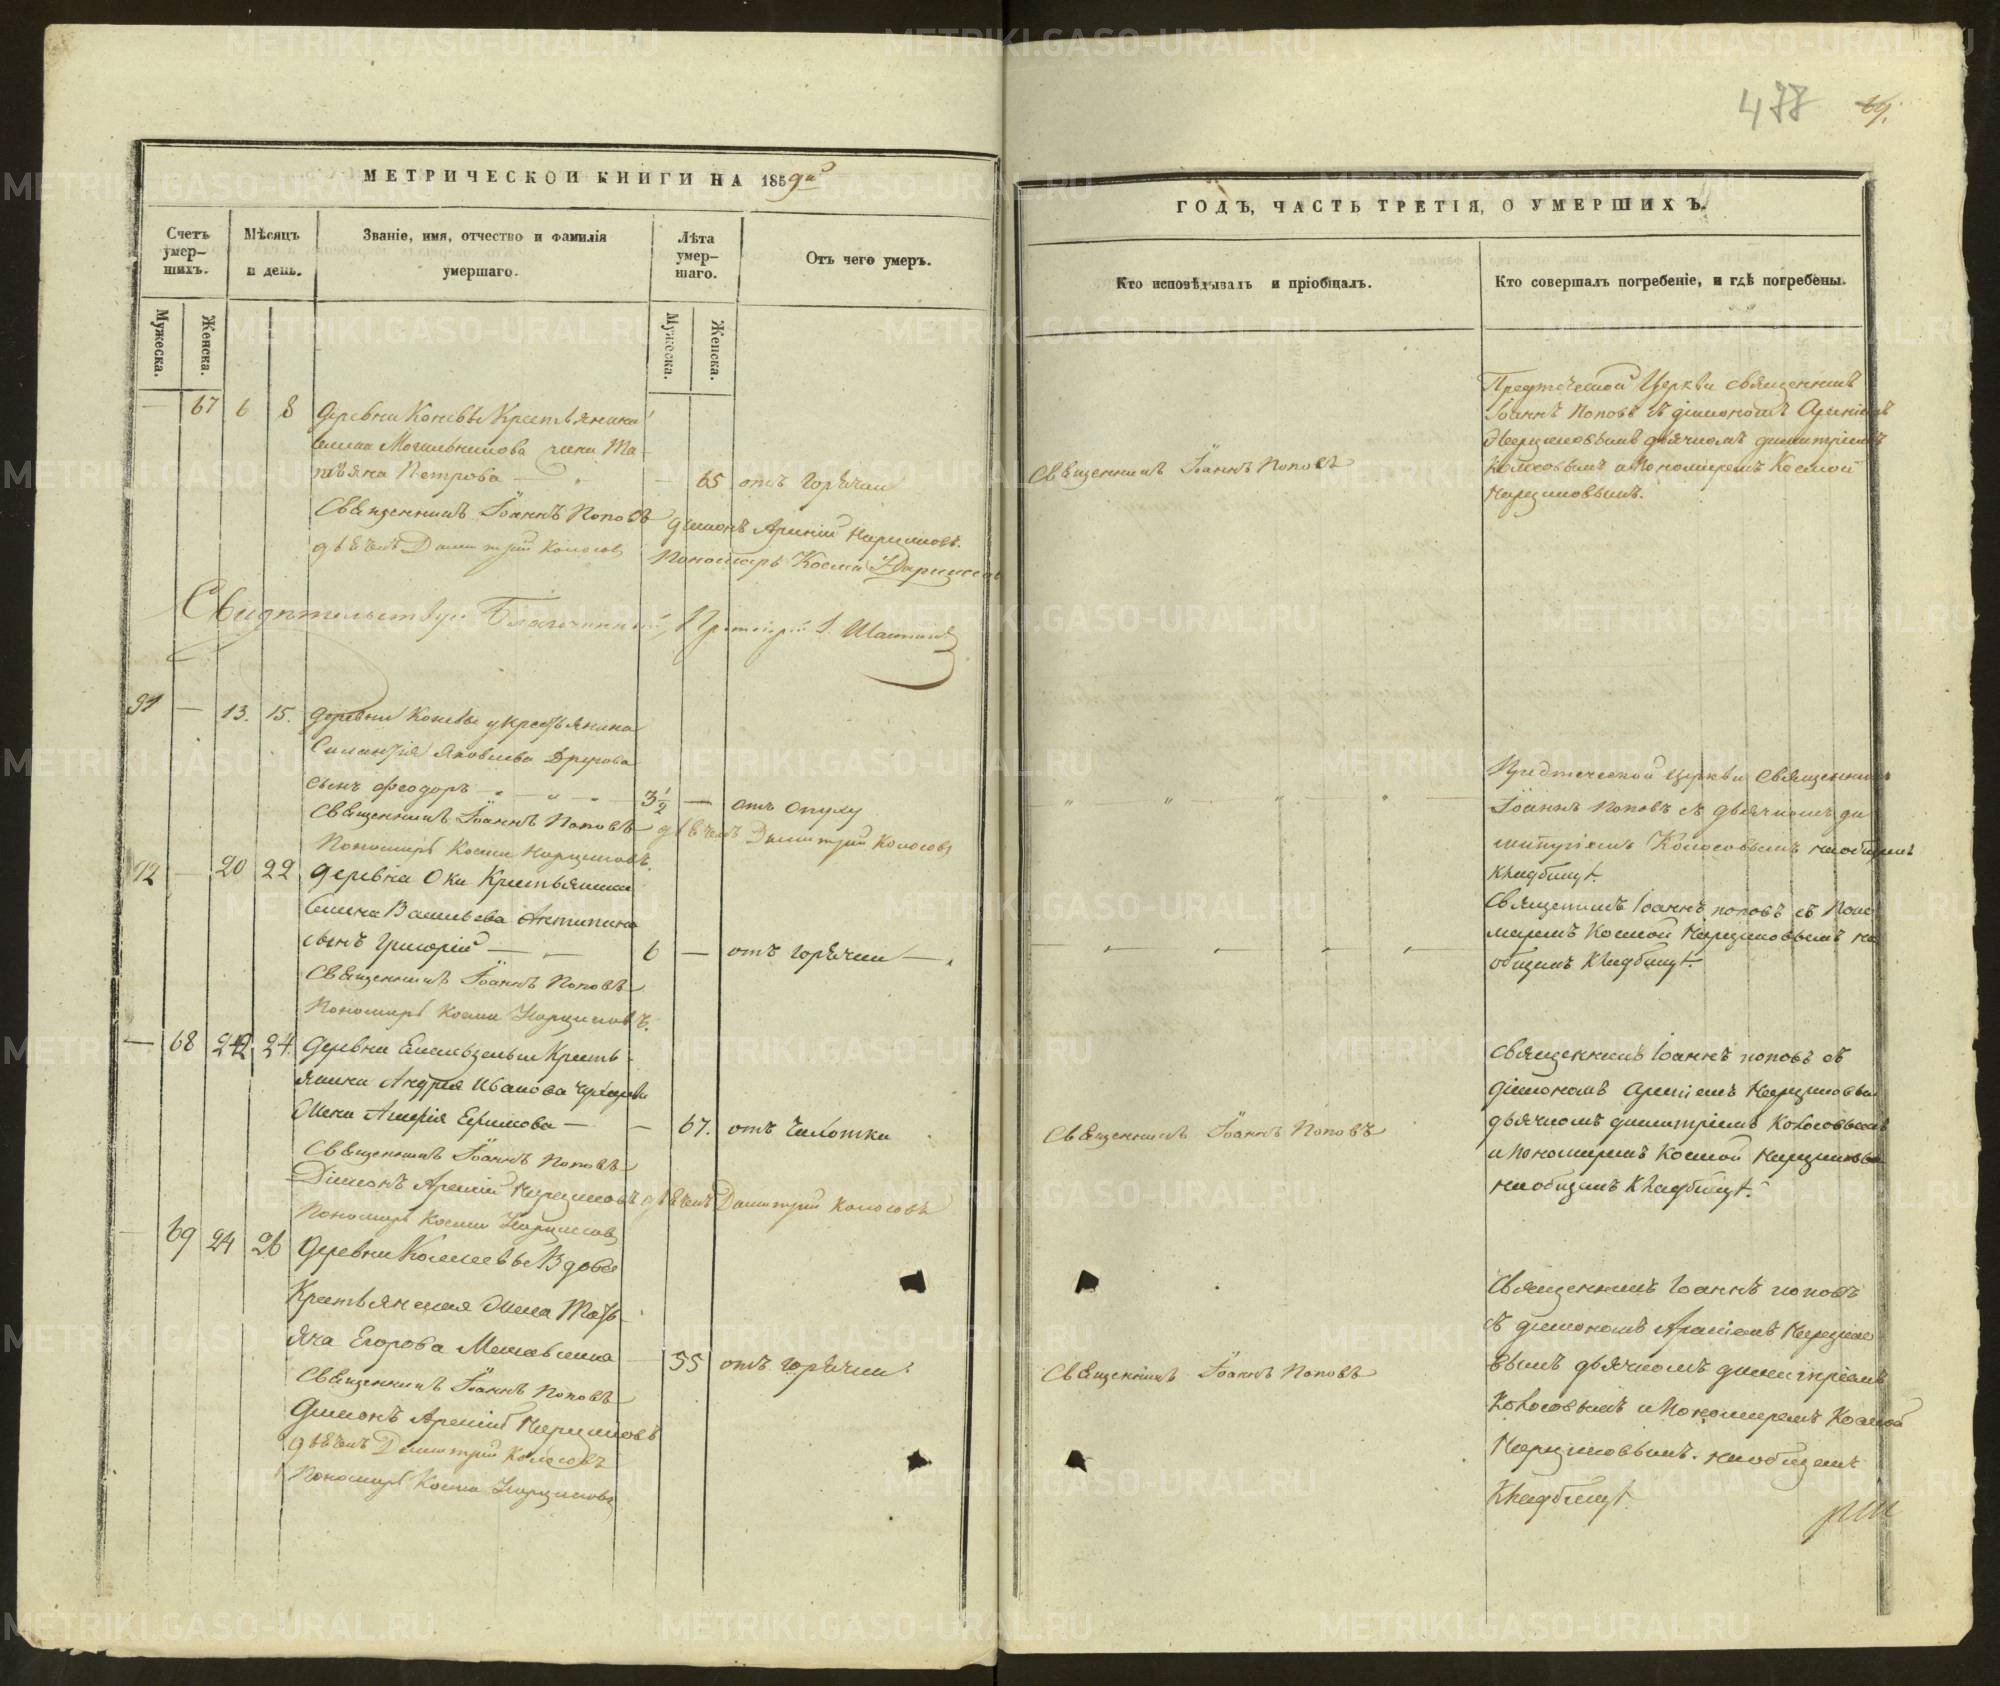 477 69.
МЕТРИЧЕСКОЙ КНИГИ НА 1859й
ГОДЪ, ЧАСТЬ ТРЕТІЯ, О УМЕРШИХЪ.
Счетъ умер-шихъ.
Мѣсяцъ и день.
Званіе, имя, отчество и фамилія умершаго.
Лѣта умер-шаго.
Отъ чего умеръ.
Кто исповѣдывалъ и пріобщалъ.
Кто совершалъ погребеніе, и гдѣ погребены.
Мужеска.
Женска.
Мужеска.
Женска.
— 67 6 8 Деревни Коневы Крестьянина
Могильникова жена Та-
тьяна Петрова — 65 отъ горячки
Священникъ Іоаннъ Поповъ
Предтеческой Церкви священникъ
Іоаннъ Поповъ съ діакономъ Арсеніемъ
Нарциссовымъ дьячкомъ Димитріемъ
Колосовымъ и Пономаремъ Космой
Нарциссовымъ.
Священникъ Іоаннъ Поповъ діаконъ Арсеній Нарциссовъ.
дьячекъ Димитрій Колосовъ Пономарь Косма Нарциссовъ
Свидѣтельствую Благочинный, Протоіерей І.
91 — 13. 15. Деревни Коневы у крестьянина
Силантія Яковлева Другова
сынъ Феодоръ 3½ — отъ опуху
Предтеческой Церкви Священникъ
Іоаннъ Поповъ съ дьячкомъ Ди
митріемъ Колосовымъ на общемъ
кладбищѣ.
Священникъ Іоаннъ Поповъ дьячекъ Димитрій Колосовъ
Пономарь Косма Нарциссовъ.
92 — 20 22 Деревни Оки Крестьянина
Васильева Антипина
сынъ Григорій — 6 — отъ горячки —
Священникъ Іоаннъ Поповъ съ Поно
маремъ Космой Нарциссовымъ на
общемъ кладбищѣ.
Священникъ Іоаннъ Поповъ
Пономарь Косма Нарциссовъ.
— 68 22 24 Деревни Кресть-
янина Андрея Иванова
жена Ефимова — — 67. отъ чахотки
Священникъ Іоаннъ Поповъ
Священникъ Іоаннъ Поповъ съ
діакономъ Арсеніемъ Нарциссовы
дьячкомъ Димитріемъ Колосовымъ
и Пономаремъ Космой Нарциссовы
на общемъ кладбищѣ.
Священникъ Іоаннъ Поповъ
Діаконъ Арсеній Нарциссовъ дьячекъ Димитрій Колосовъ
Пономарь Косма Нарциссовъ
— 69 24 26 Деревни Вдова
Крестьянская жена Тать-
яна Егорова — 55 отъ горячки
Священникъ Іоаннъ Поповъ
Священникъ Іоаннъ Поповъ
съ діакономъ Арсеніемъ Нарциссо
вымъ дьячкомъ Димитріемъ
Колосовымъ и Пономаремъ Космой
Нарциссовымъ. на общемъ
кладбищѣ.
Священникъ Іоаннъ Поповъ
Діаконъ Арсеній Нарциссовъ
дьячекъ Димитрій Колосовъ
Пономарь Косма Нарциссовъ
METRIKI.GASO-URAL.RU